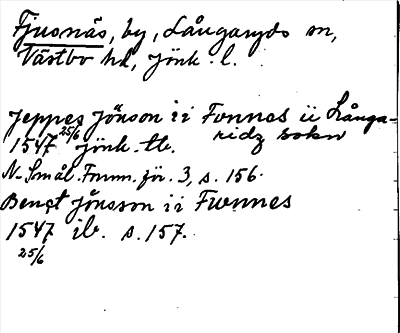 Fjusnäs, by, Långaryds sn,
Västbo hd, Jönk. l.
Jeppes Jönson ii Fonnes ii Långa-
ridz sokn
1547 25/6 Jönk. tb.
N. Smål. Fornm. för. 3, s. 156.
Bengt Jönsson ii Fwnnes
1547 ib. s. 157.
25/6